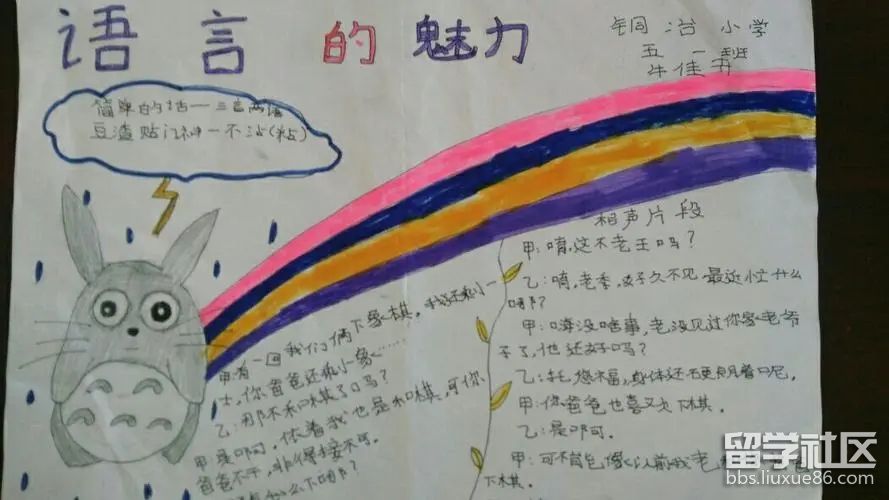 语言的魅力
铜冶小学
五一班
牛佳
简单的话一三言两语
豆渣贴门神一不沾(粘)
相声片段
甲:唷,这不老王吗?
乙:唷,老李,好久不见,最近忙什么
呐?
甲:嗨没啥事,老没见过你家老爷
子了,他还好吗?
乙:托您福,身体还
甲:你爸爸也喜欢下棋。
乙:是啊可。
甲:可不前包像以前我老
下棋。
甲:有一回我们俩下象棋,我还剩小一
士,你爸爸还剩小象……
乙:那不和棋了吗?
甲:是啊可,依着我也是和棋,可你
爸爸不干,非得接不可。
怎么下啊?
留学社区
bbs.liuxue86.com